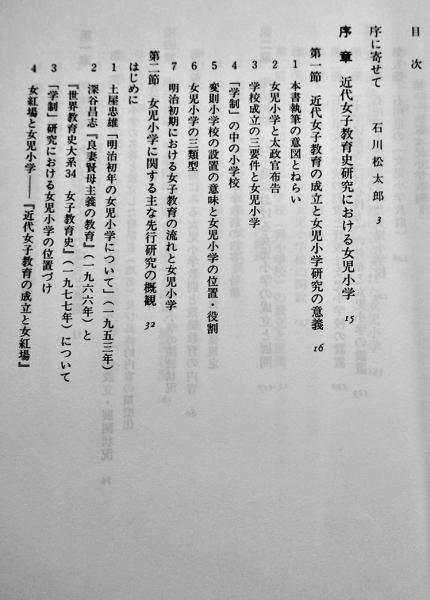 目次
序に寄せて　石川松太郎　3
序章　近代女子教育史研究における女児小学　15
第一節　近代女子教育の成立と女児小学研究の意義　16
1　本書執筆の意図とねらい
2　女児小学と太政官布告
3　学校成立の三要件と女児小学
4　「学制」の中の小学校
5　変則小学校の設置の意味と女児小学の位置・役割
6　女児小学の三類型
7　明治初期における女子教育の流れと女児小学
第二節　女児小学に関する主な先行研究の概観　32
はじめに
1　土屋忠雄「明治初年の女児小学について」（一九五三年）
2　深谷昌志『良妻賢母主義の教育』（一九六六年）と
『世界教育史大系34　女子教育史』（一九七七年）について
3　「学制」研究における女児小学の位置づけ
4　女紅場と女児小学――『近代女子教育の成立と女紅場』